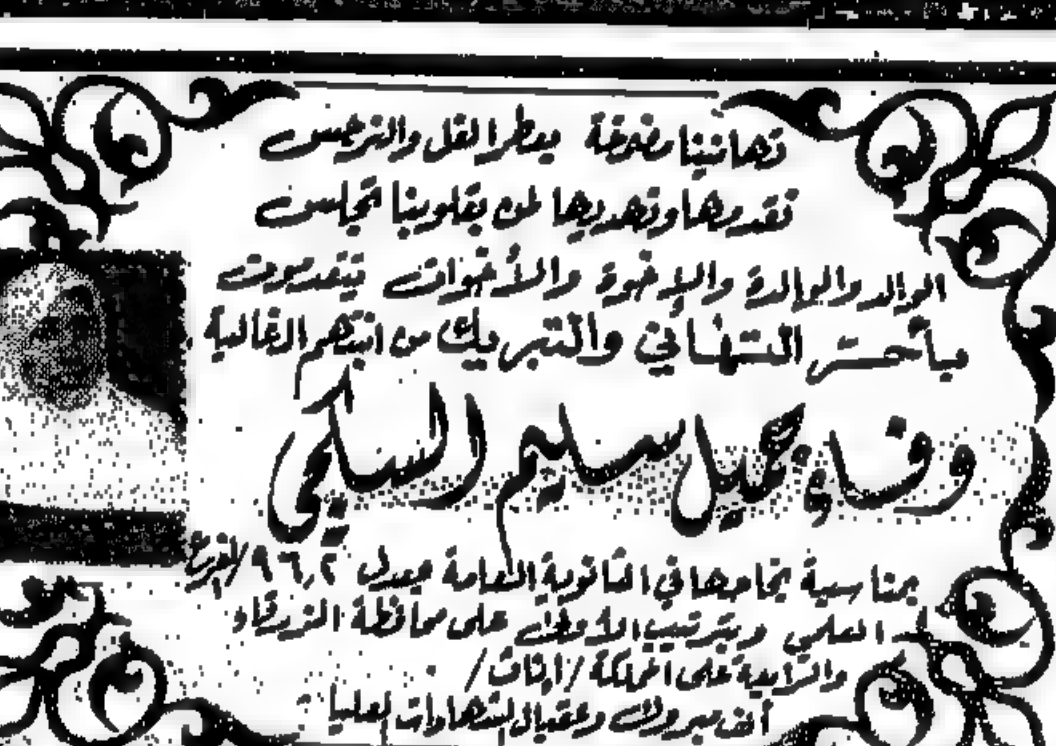 تهانينا مضمخة بعطر الفل والنرجس
نقدمها ونهديها لمن بقلوبنا تجلس
الوالد والوالدة والإخوة والأخوات يتقدمون
بأحسن التهاني والتبريك من ابنتهم الغالية
وفاء جميل سليم السكجي
بمناسبة نجاحها في الثانوية العامة بمعدل ٩٦٫٢ / الفرع
العلمي وبترتيب الأولى على محافظة الزرقاء
والرابعة على المملكة / اناث /
ألف مبروك وعقبال الشهادات العليا